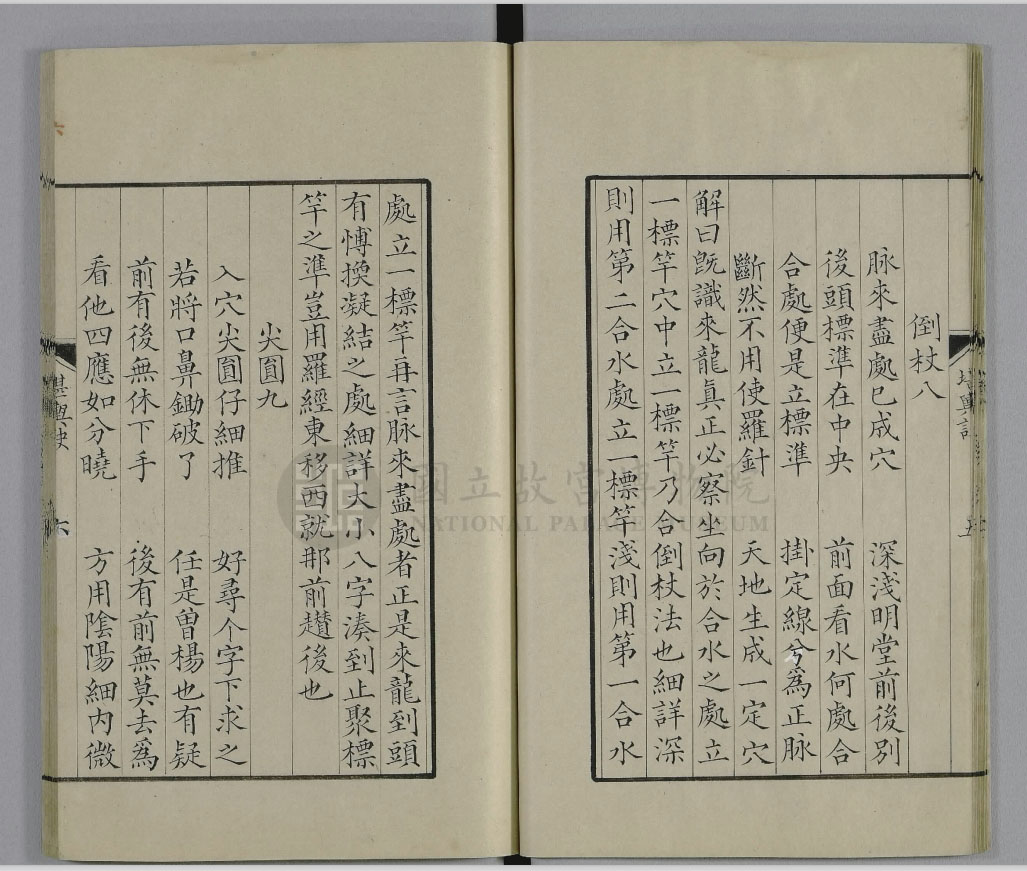 倒杖八
脉來盡處已成穴　深淺明堂前後別
後頭標準在中央　前面看水何處合
合處便是立標準　掛定線兮為正脉
斷然不用使羅針　天地生成一定穴
解曰旣識來龍真正必察坐向於合水之處立
一標竿穴中立一標竿乃合倒杖法也細詳深
則用第二合水處立一標竿淺則用第一合水
處立一標竿再言脉來盡處者正是來龍到頭
有慱換凝結之處細詳大小八字湊到止聚標
竿之準豈用羅經東移西就那前趲後也
尖圓九
入穴尖圓仔細推　好尋个字下求之
若將口鼻鋤破了　任是曾楊也有疑
前有後無休下手　後有前無莫去爲
看他四應如分曉　方用陰陽細內微
六
國立故宮博物院
NATIONAL PALACE MUSEUM